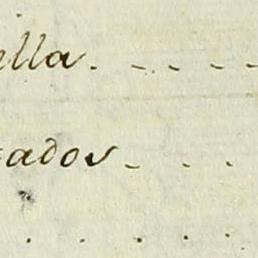 lla. - - - -
ados - . .
. . . . .